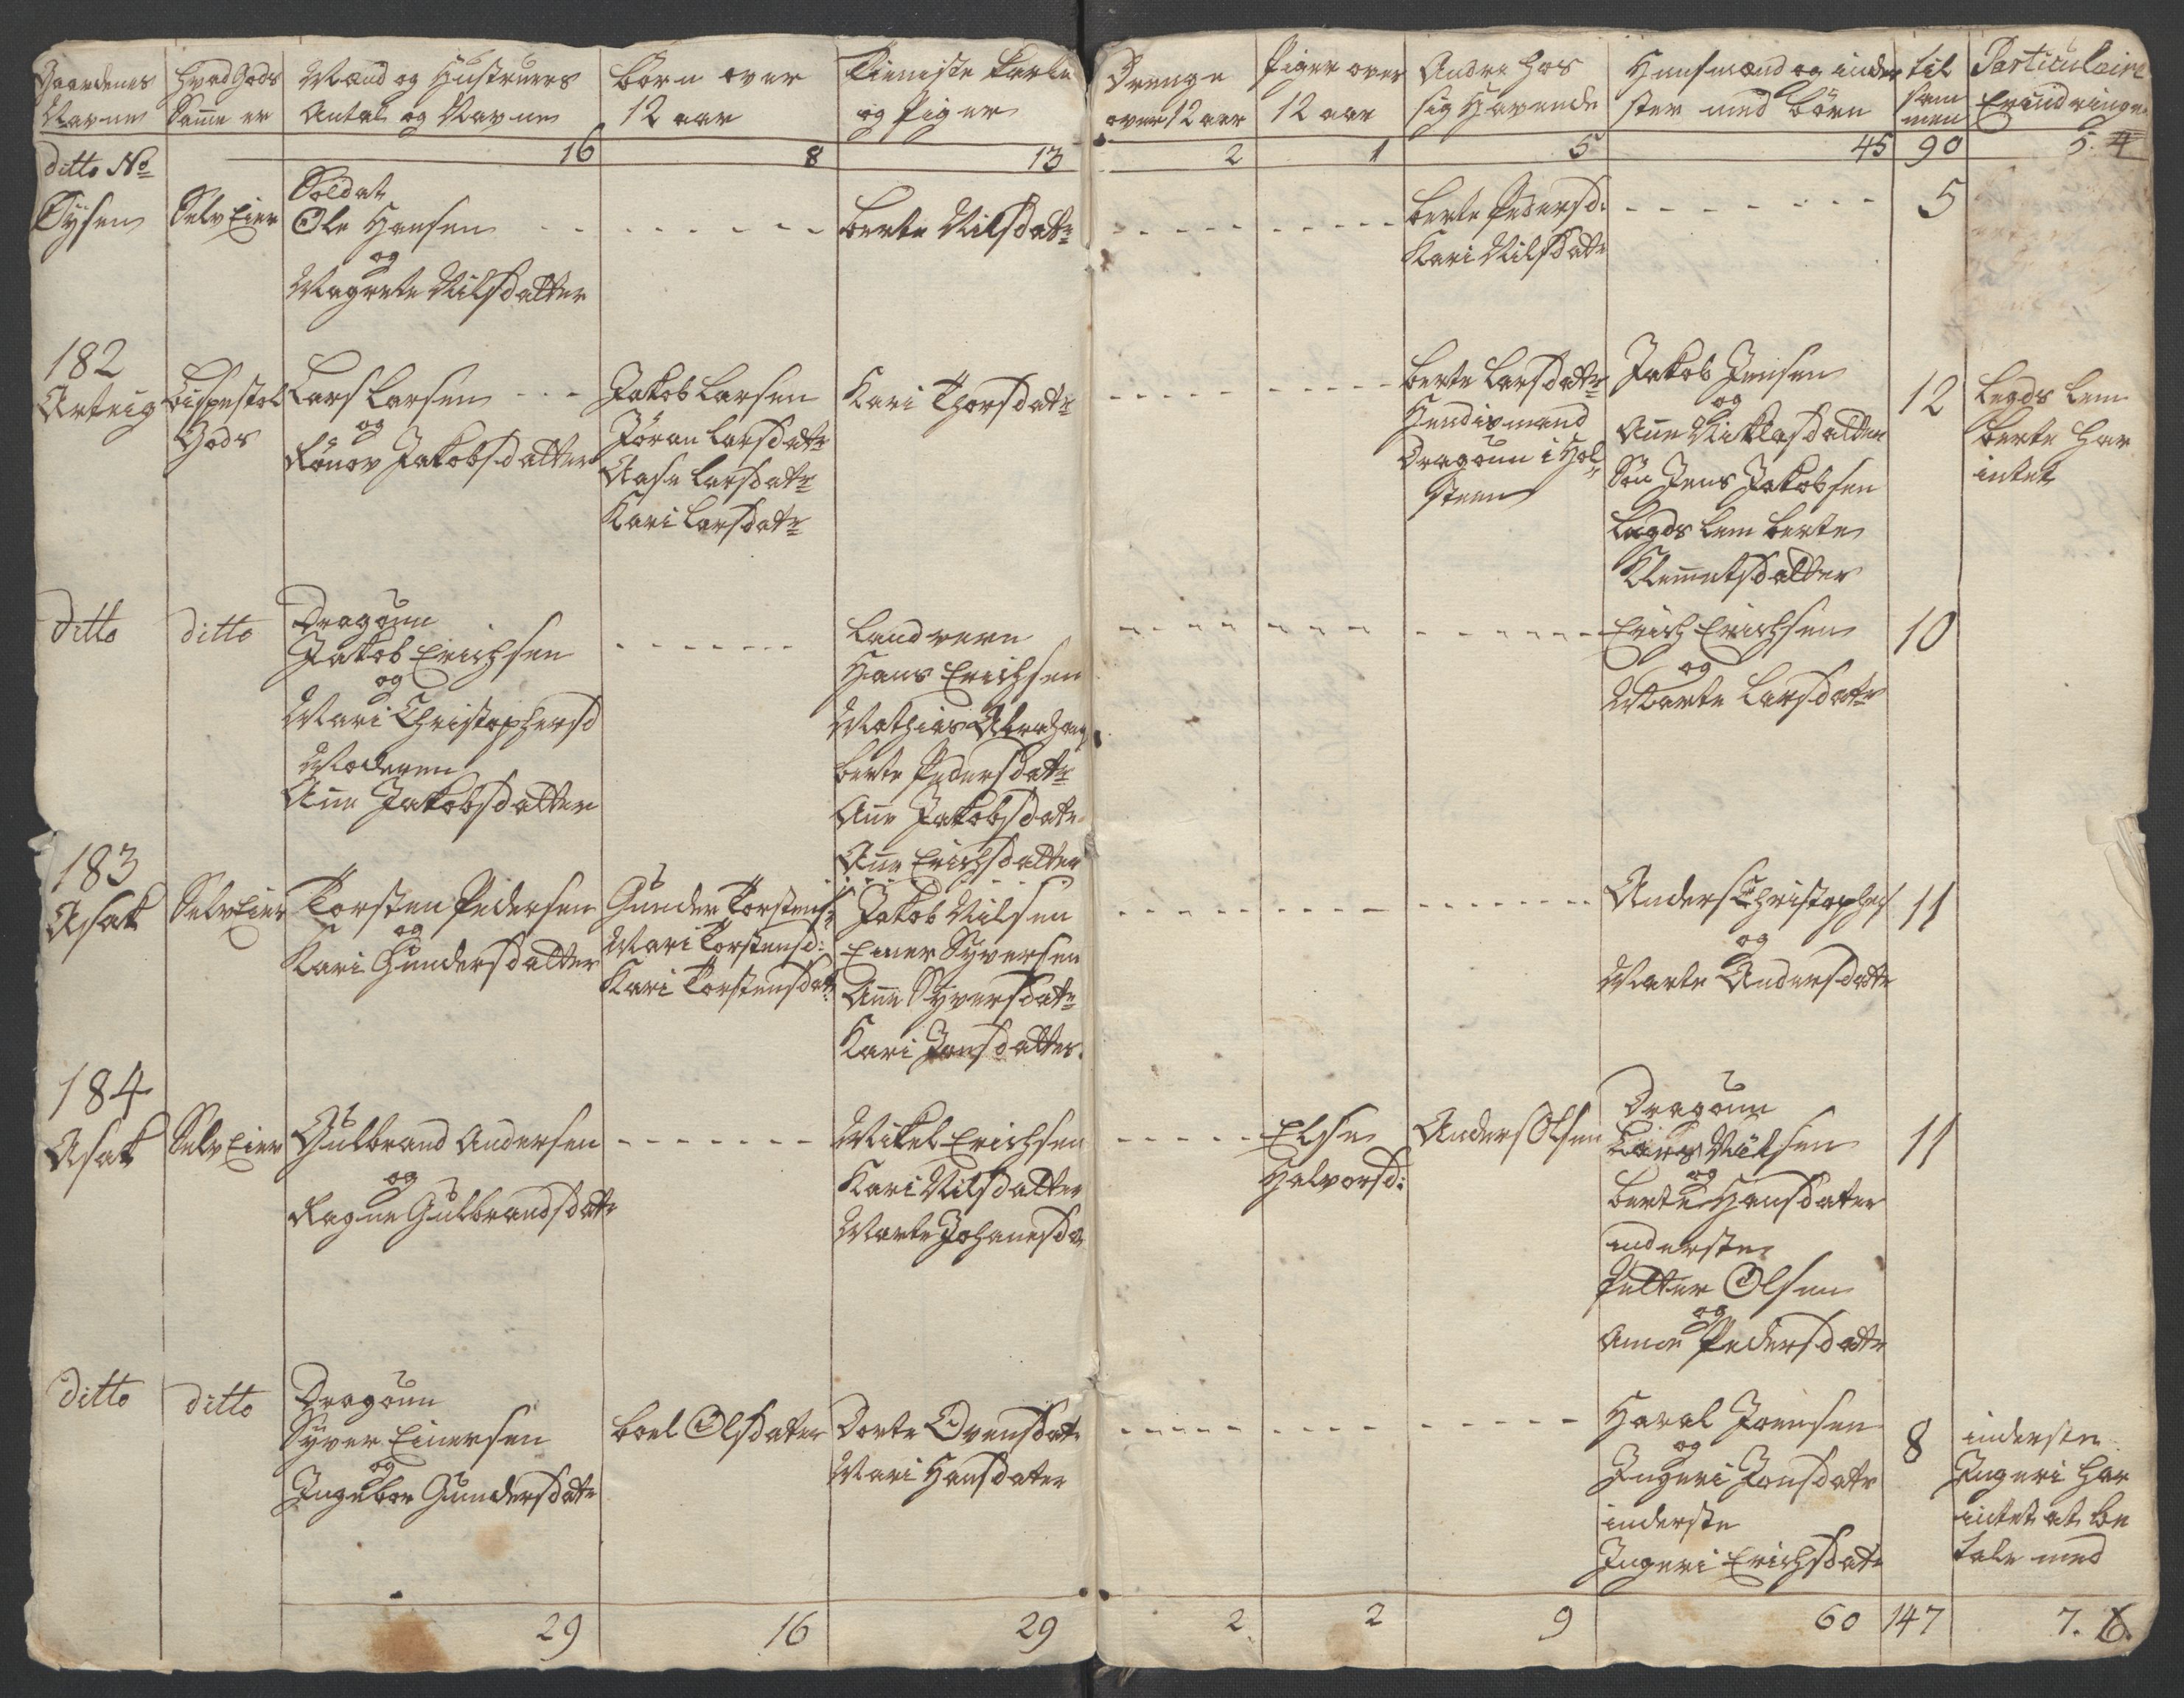 Gaardenes Navne
Hvad Gods Samme er
Mænd og Hustruers Antal og Navne
Børn over 12 aar
Tieniste Karle og Piger
Drenge over 12 aar
Piger over 12 aar
Andre hos sig Havende
Huusmænd og inderster med børn
til sammen
Particulaire Erindringer
16 8 13 2 1 5 45 90 5. 4
ditto No
Tysen
Selv Eier
Soldat
Ole Hansen
og
Magrete Nilsdatter
Berte Nilsdatr
Berte Pedersd:
Kari Nilsdatr
5
182
Arteig
Bispestol
Gods
Lars Larsen
og
Rønov Jakobsdatter
Jakob Larsen
Jøran Larsdatr
Aase Larsdatr
Kari Larsdatr
Kari Thorsdatr
Berte Larsdatr
Hendis mand
Dragoun i Hol
steen
Jakob Jensen
og
Ane Niklasdatter
Søn Jens Jakobsen
Legds lem Berte
Klemetsdatter
12
Legds lem
Berte har
intet
ditto
ditto
Dragoun
Jakob Erichsen
og
Mari Christophersd
Moderen
Ane Jakobsdatter
Landvern
Hans Erichsen
Mathias Abraham
Berte Pedersdatr
Ane Jakobsdatr
Ane Erichsdatter
Erich Erichsen
og
Marte Larsdatr
10
183
Asak
Selv Eier
Torsten Pedersen
og
Kari Gundersdatter
Gunder Torstens
Mari Torstensd:
Kari Torstensdatr
Jakob Nilsen
Einer Syversen
Ane Syversdatr
Kari Jonsdatter
Anders Christophers
og
Marte Andersdatr
11
184
Asak
Selv Eier
Gulbrand Andersen
og
Ragne Gulbrandsdatr
Mikel Erichsen
Kari Nilsdatter
Marte Johanesda
Else
Halvorsd:
Anders Olsen
Dragoun
Lars Nilsen
og
Berte Hansdater
inderste
Petter Olsen
og
Ane Pedersdatr
11
ditto
ditto
Dragoun
Syver Einersen
og
Ingebor Gundersdatr
Boel Olsdater
Dorte Evensdatr
Mari Hansdater
Haral Joensen
og
Ingeri Jonsdatr
inderste
Ingeri Erichsdatr
8
inderste
Ingeri har
intet at be
tale med
29 16 29 2 2 9 60 147 7. 6.